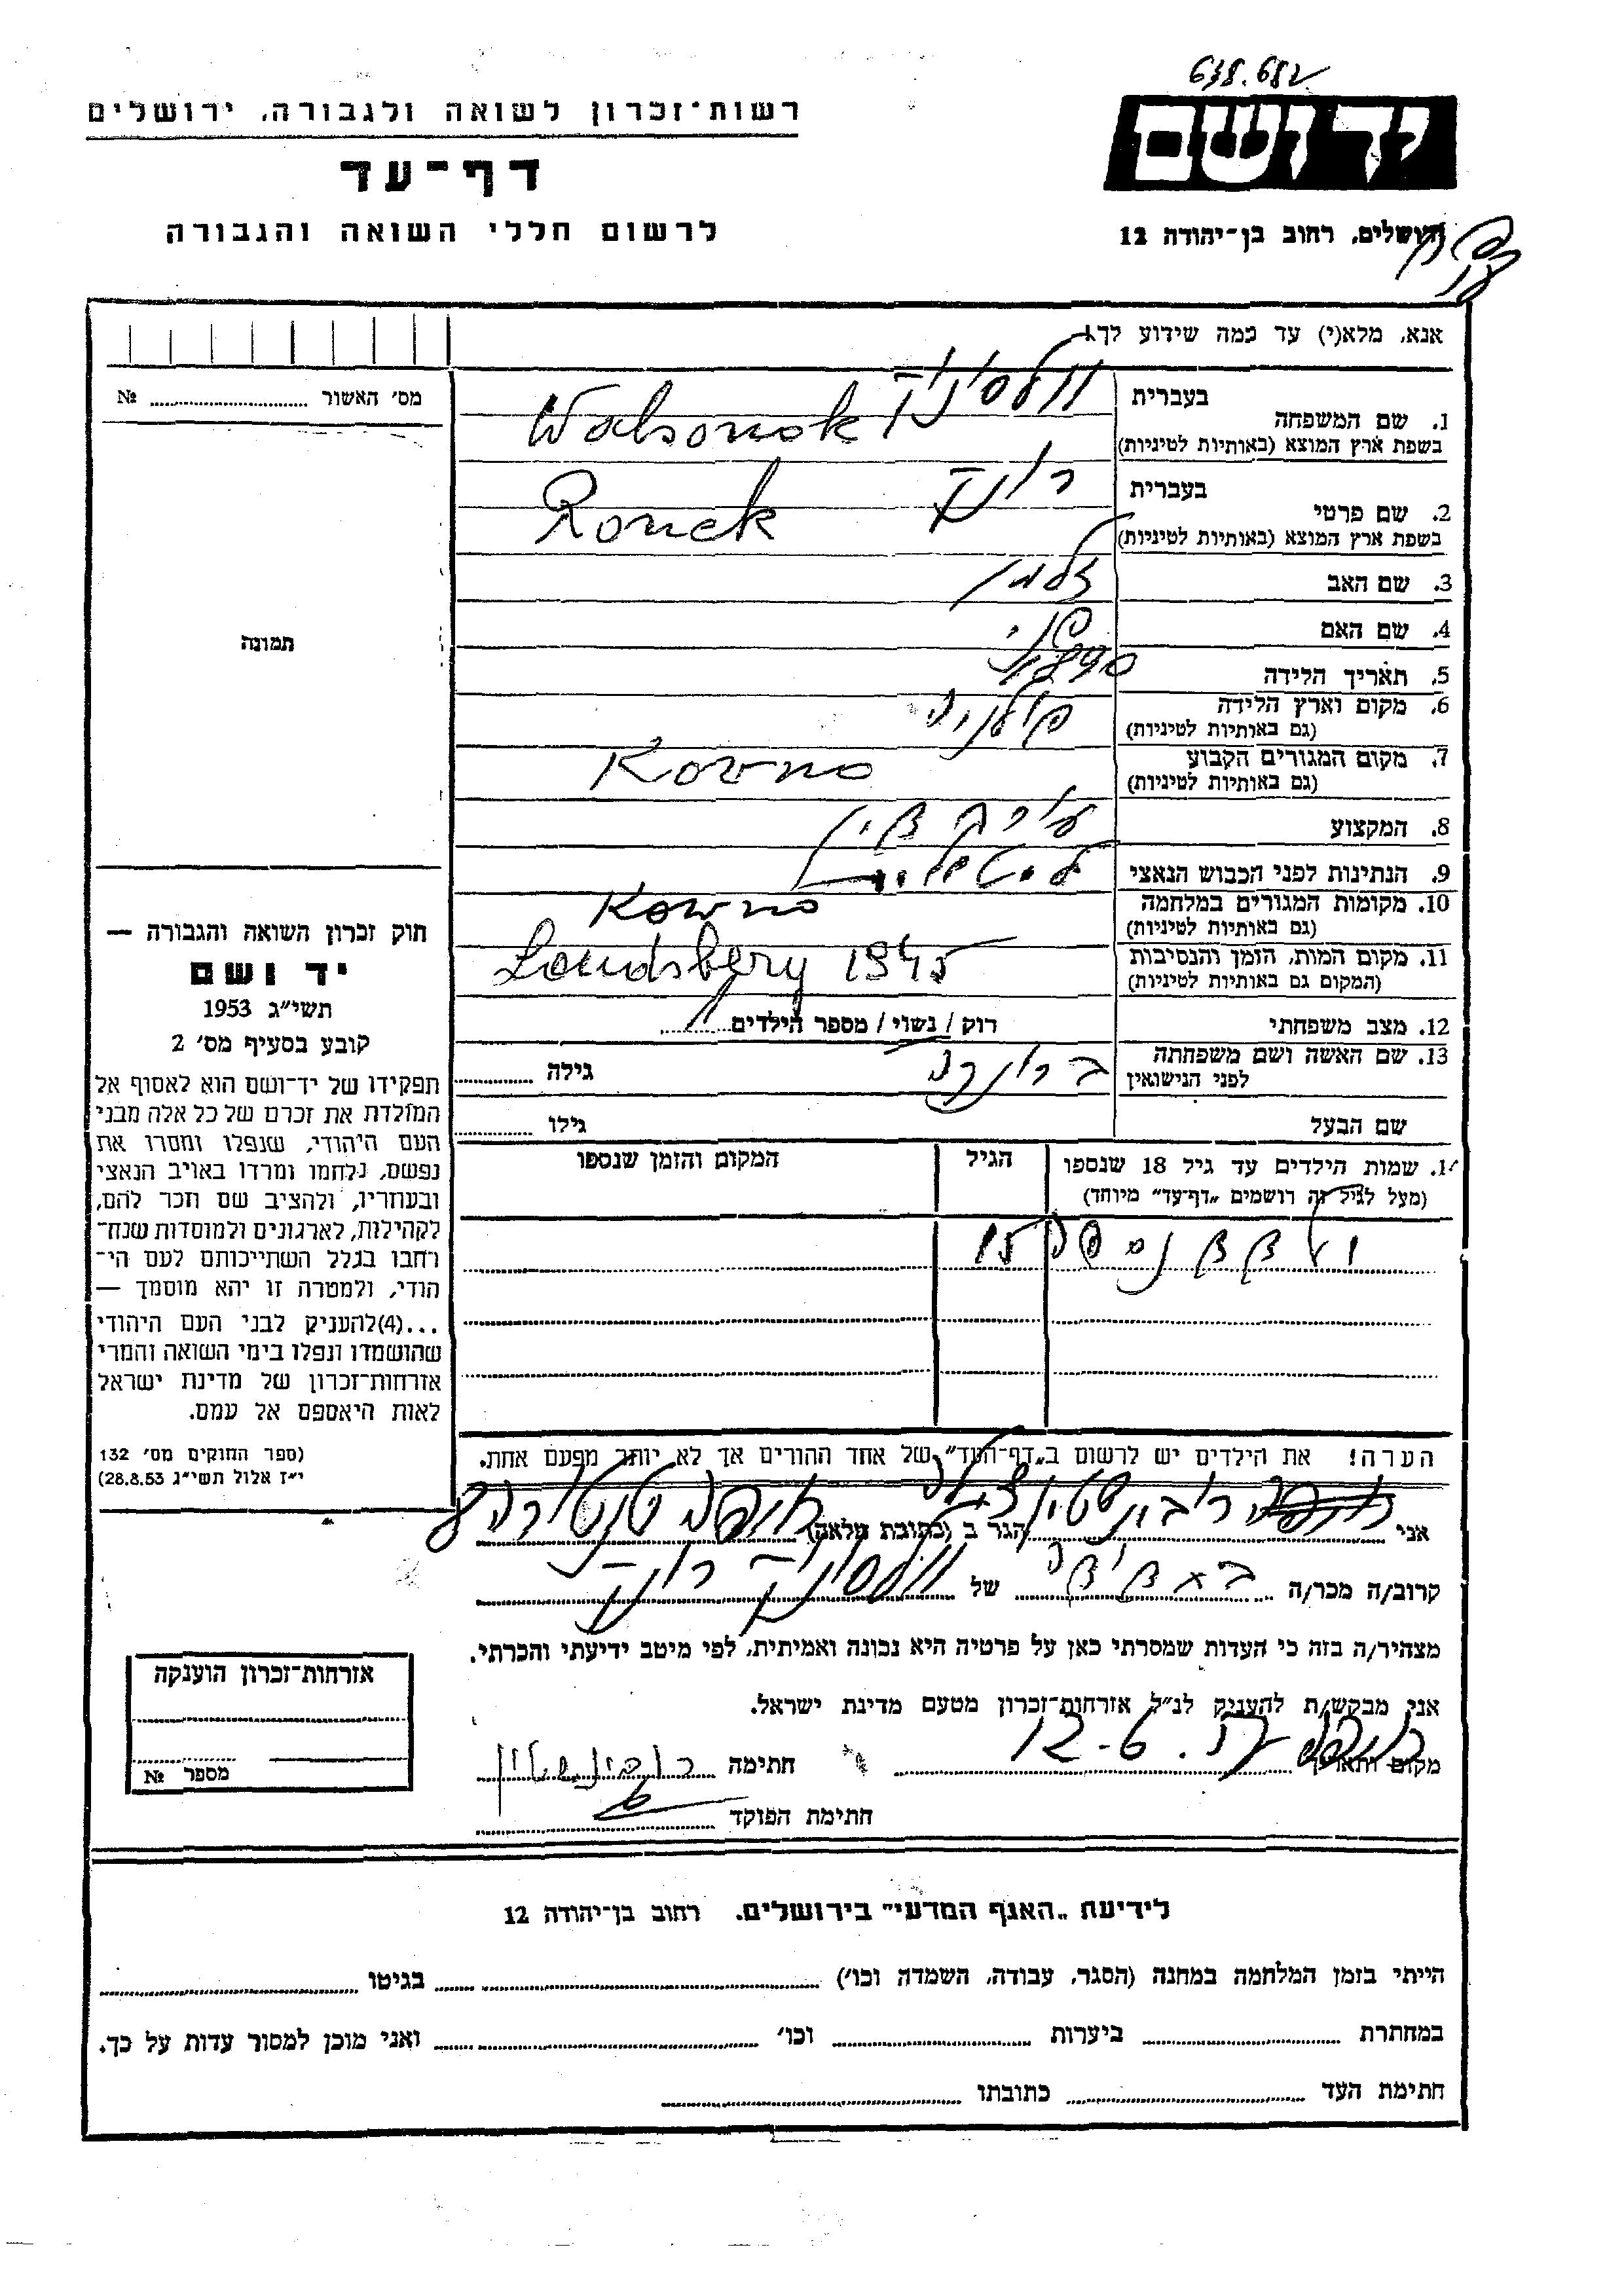 638.682
רשות־זכרון לשואה ולגבורה, ירושלים
יד ושם
דף־עד
לרשום חללי השואה והגבורה
ירושלים, רחוב בן־יהודה 12
אנא, מלא(י) עד כמה שידוע לך!
מס׳ האשור № ........
בעברית
1. שם המשפחה
Wolsonok
בשפת ארץ המוצא (באותיות לטיניות)
בעברית רונק
2. שם פרטי
Ronek
בשפת ארץ המוצא (באותיות לטיניות)
3. שם האב זלמן
4. שם האם
תמונה
5. תאריך הלידה 1890
6. מקום וארץ הלידה
(גם באותיות לטיניות)
7. מקום המגורים הקבוע Kowno
(גם באותיות לטיניות)
8. המקצוע עורך דין
9. הנתינות לפני הכבוש הנאצי
10. מקומות המגורים במלחמה Kowno
(גם באותיות לטיניות)
11. מקום המות, הזמן והנסיבות Landsberg 1945
(המקום גם באותיות לטיניות)
12. מצב משפחתי רוק / נשוי / מספר הילדים
13. שם האשה ושם משפחתה
לפני הנישואין
גילה ........
שם הבעל גילו ........
14. שמות הילדים עד גיל 18 שנספו הגיל המקום והזמן שנספו
(מעל לגיל זה רושמים „דף־עד" מיוחד)
15
חוק זכרון השואה והגבורה —
יד ושם
תשי״ג 1953
קובע בסעיף מס׳ 2
תפקידו של יד־ושם הוא לאסוף אל
המולדת את זכרם של כל אלה מבני
העם היהודי, שנפלו ומסרו את
נפשם, נלחמו ומרדו באויב הנאצי
ובעוזריו, ולהציב שם וזכר להם,
לקהילות, לארגונים ולמוסדות שנח־
רבו בגלל השתייכותם לעם הי־
הודי, ולמטרה זו יהא מוסמך —
...(4)להעניק לבני העם היהודי
שהושמדו ונפלו בימי השואה והמרי
אזרחות־זכרון של מדינת ישראל
לאות היאספם אל עמם.
(ספר החוקים מס׳ 132
י״ז אלול תשי״ג 28.8.53)
הערה! את הילדים יש לרשום ב„דף־העד" של אחד ההורים אך לא יותר מפעם אחת.
אני רובינשטין הגר ב (כתובת מלאה)
קרוב/ה מכר/ה של רונק
מצהיר/ה בזה כי העדות שמסרתי כאן על פרטיה היא נכונה ואמיתית, לפי מיטב ידיעתי והכרתי.
אני מבקש/ת להעניק לנ״ל אזרחות־זכרון מטעם מדינת ישראל.
מקום ותאריך 12-6. חתימה רובינשטין
חתימת הפוקד
אזרחות־זכרון הוענקה
מספר №
לידיעת „האגף המדעי" בירושלים, רחוב בן־יהודה 12
הייתי בזמן המלחמה במחנה (הסגר, עבודה, השמדה וכו׳) ........ בגיטו ........
במחתרת ........ ביערות ........ וכו׳ ........ ואני מוכן למסור עדות על כך.
חתימת העד ........ כתובתו ........